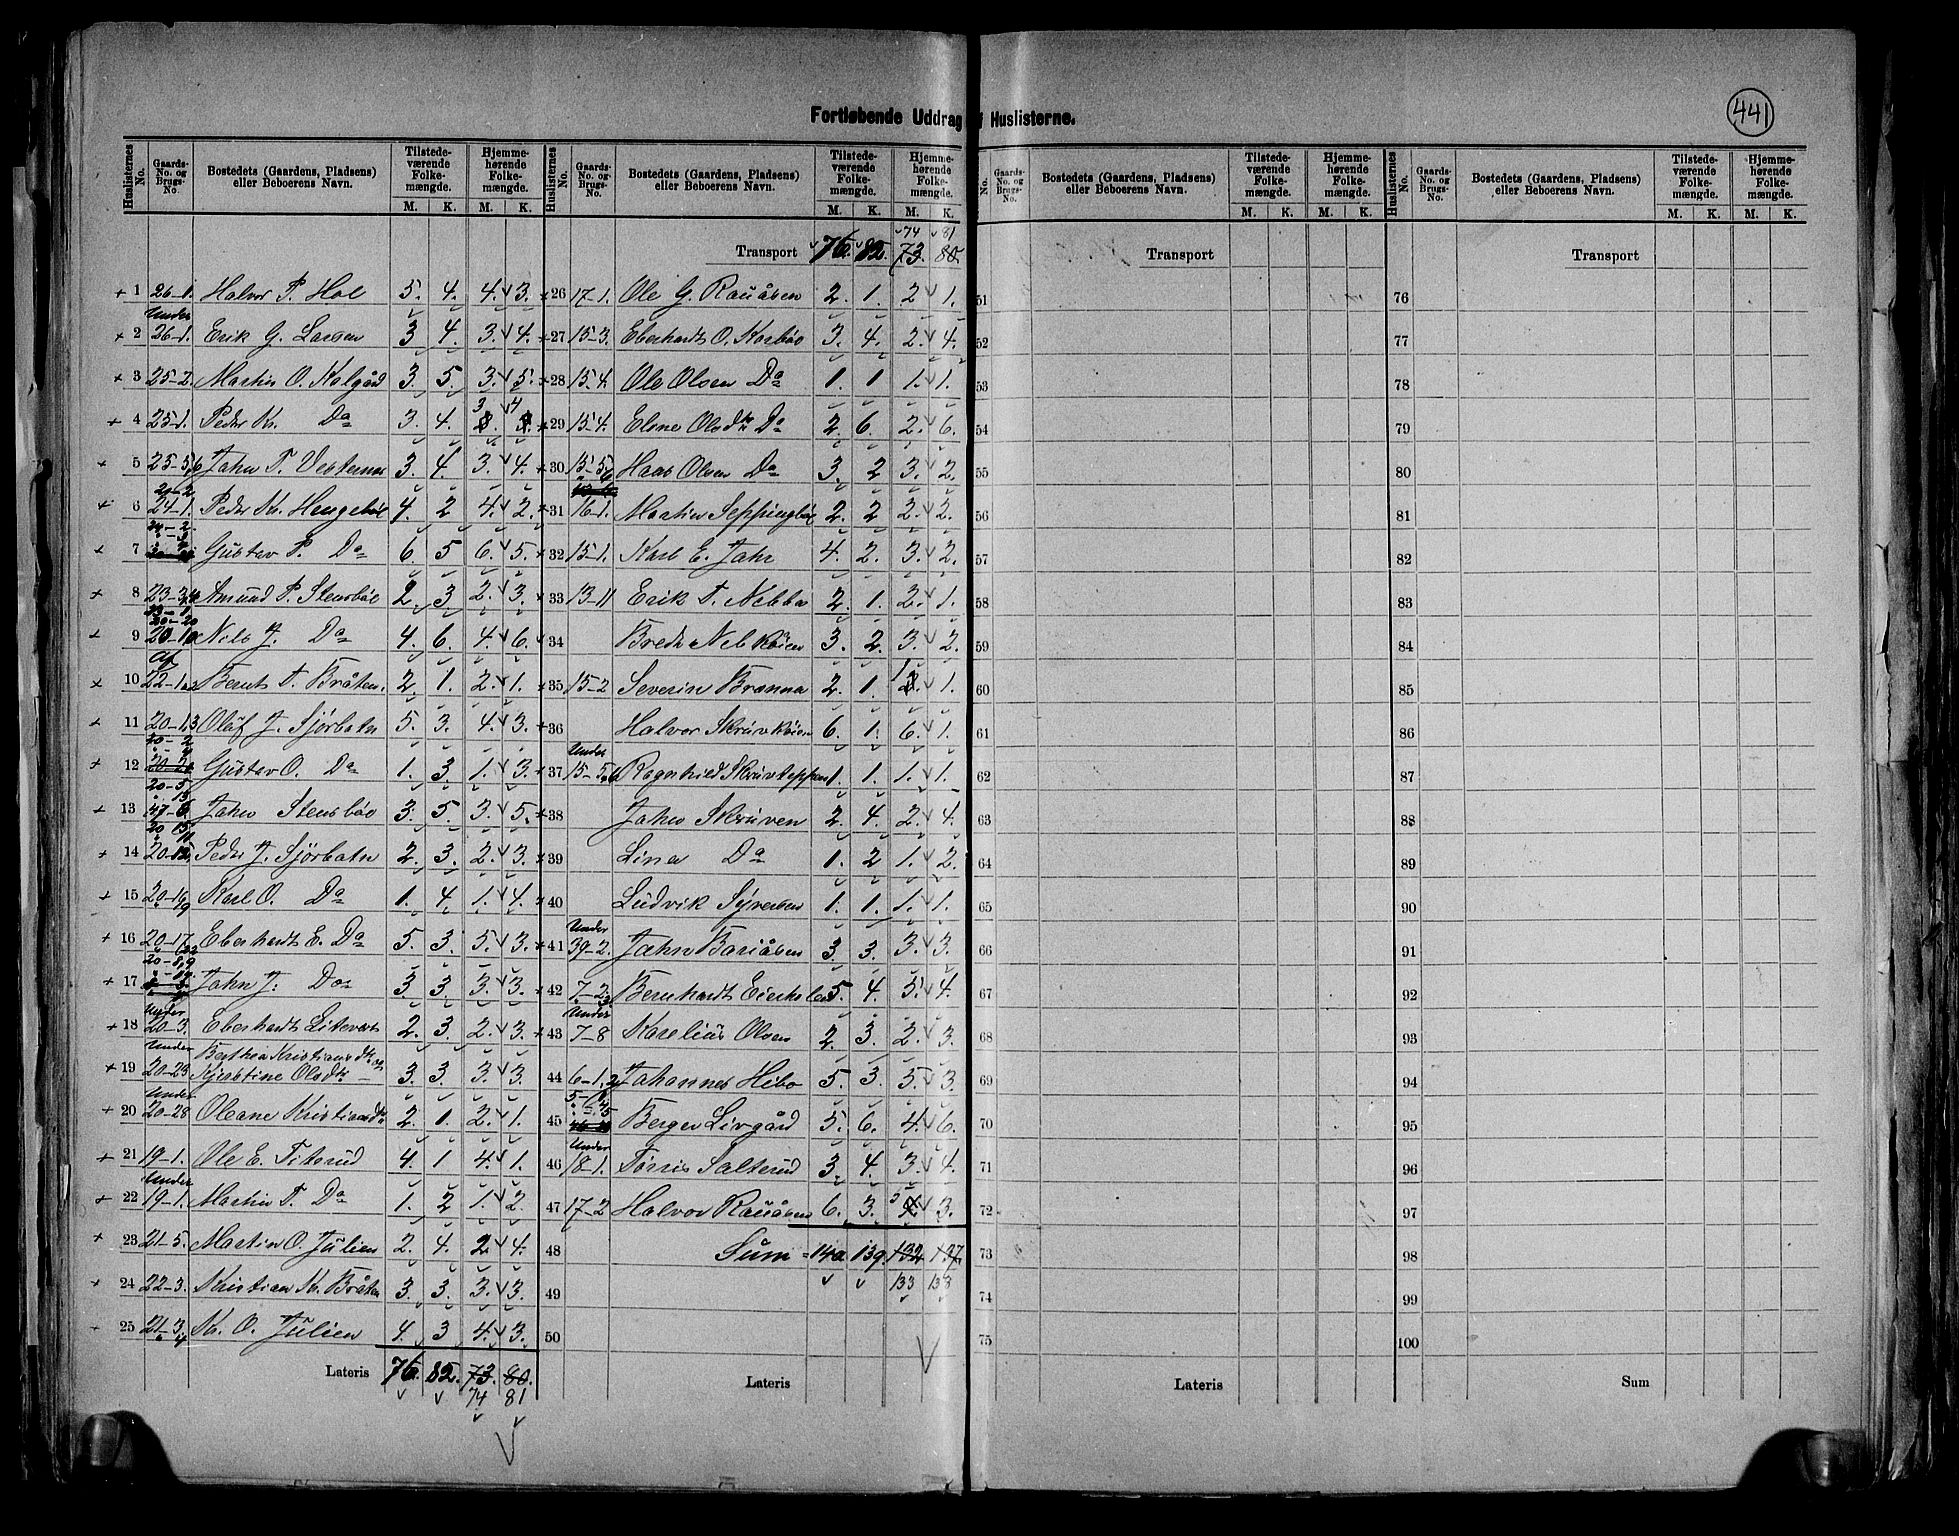 441
Fortløbende Uddrag Huslisterne.
Huslisternes No. Gaards-No. og Brugs-No. Bostedets (Gaardens, Pladsens) eller Beboerens Navn. Tilstedeværende Folkemængde. M. K. Hjemmehørende Folkemængde. M. K.
1 26-1. Halvor P. Hol 5. 4. 4. 3.
2 Under 26-1. Erik G. Larsen 3 4. 3. 4.
3 25-2. Martin O. Kalgård 3. 5. 3. 5.
4 25-1. Peder Kr. Do 3. 4. 3 4
5 25-5,6 Jahn T. 3. 4. 3. 4.
6 24-1. Peder Kr. 4. 2 4. 2.
7 Gustav P. Do 6. 5 6. 5.
8 Amund P. Stensbøe 2. 3 2. 3.
9 20-10 Nils J. Do 4. 6. 4. 6.
10 Af 22-1 Bernt T. Bråten 2. 1. 2. 1.
11 20-1,3 Olaf J. Sjørbotn 5. 3. 4. 3.
12 Gustav O. Do 1. 3. 1. 3.
13 Jahn Stensbøe 3. 5. 3. 5.
14 Peder J. Sjørbotn 2. 3. 2. 3.
15 Karl O. Do 1. 4. 1. 4.
16 20-17 Eberhardt E. Do 5. 3. 5. 3.
17 Jahn J. Do 3 3. 3. 3.
18 Under 20-3. Eberhardt 2. 3. 2. 3.
19 Under 20-23 Berthea Kristiansdtr og
Kjerstine Olsdtr 3. 3. 3. 3.
20 Under 20-28 Oleane Kristiansdtr 2. 1. 2. 1.
21 19-1. Ole E. Titerud 4. 1 4. 1.
22 Under 19-1. Martin T. Do 1. 2 1. 2.
23 21-5. Martin O. Julien 2. 4. 2. 4.
24 22-3. Kristian Kr. Bråten 3. 3. 3. 3.
25 21-3,4 Kr. O. Julien 4. 3 4. 3.
Lateris 76. 82. 73. 80.
74 81
Huslisternes No. Gaards-No. og Brugs-No. Bostedets (Gaardens, Pladsens) eller Beboerens Navn. Tilstedeværende Folkemængde. M. K. Hjemmehørende Folkemængde. M. K.
74 81
Transport 76. 82. 73. 80.
26 17-1. Ole G. Rauåsen 2. 1. 2 1.
27 15-3. Eberhardt O. Korsbøe 3. 4. 2. 4.
28 15-4. Ole Olsen Do 1. 1 1. 1.
29 15-4. Elene Olsdtr Do 2 6. 2. 6.
30 Hans Olsen Do 3. 2 3. 2.
31 16-1. Martin 2. 2 2. 2.
32 15-1. Karl E. Jahr 4. 2. 3. 2.
33 13-11 Erik T. 2. 1. 2. 1.
34 3. 2. 3. 2.
35 15-2 Severin Brænna 2. 1. 1 1.
36 Halvor Skruvkøien 6. 1. 6. 1.
37 Under 15-5,6 Ragnhild 1. 1. 1. 1.
38 Jahn Skruven 2 4. 2. 4.
39 Lina Do 1. 2 1. 2.
40 Ludvik Syversen 1. 1. 1. 1.
41 Under 39-2. Jahn 3. 3. 3. 3.
42 7-2,3 Bernhardt 5. 4. 5. 4.
43 Under 7-8 Karelius Olsen 2. 3. 2. 3.
44 6-1,2 Johannes Hibo 5. 3. 5. 3.
45 Berger Livgård 5. 6. 4. 6.
46 Under 18-1. Tørris Salterud 3. 4. 3. 4.
47 17-2 Halvor Rauåsen 6. 3. 5 3.
48 Sum = 140. 139. 132. 137.
49 133 138
50
Lateris
No. Gaards-No. og Brugs-No. Bostedets (Gaardens, Pladsens) eller Beboerens Navn. Tilstedeværende Folkemængde. M. K. Hjemmehørende Folkemængde. M. K.
Transport
51
52
53
54
55
56
57
58
59
60
61
62
63
64
65
66
67
68
69
70
71
72
73
74
75
Lateris
Huslisternes No. Gaards-No. og Brugs-No. Bostedets (Gaardens, Pladsens) eller Beboerens Navn. Tilstedeværende Folkemængde. M. K. Hjemmehørende Folkemængde. M. K.
Transport
76
77
78
79
80
81
82
83
84
85
86
87
88
89
90
91
92
93
94
95
96
97
98
99
100
Sum